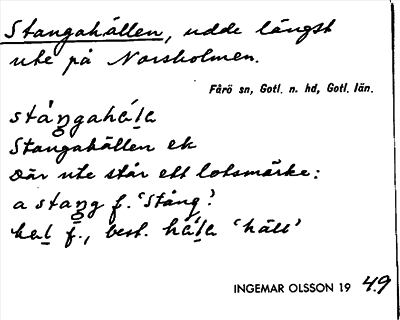 Stangahällen, udde längst
ute på Norsholmen.
Fårö sn, Gotl. n. hd, Gotl. län.
ståŋgahäl̲a
Stangahällen ek
Där ute står ett lotsmärke:
a staŋg f. 'stång'.
hal̲ f., best. häl̲a 'häll'
INGEMAR OLSSON 19 49